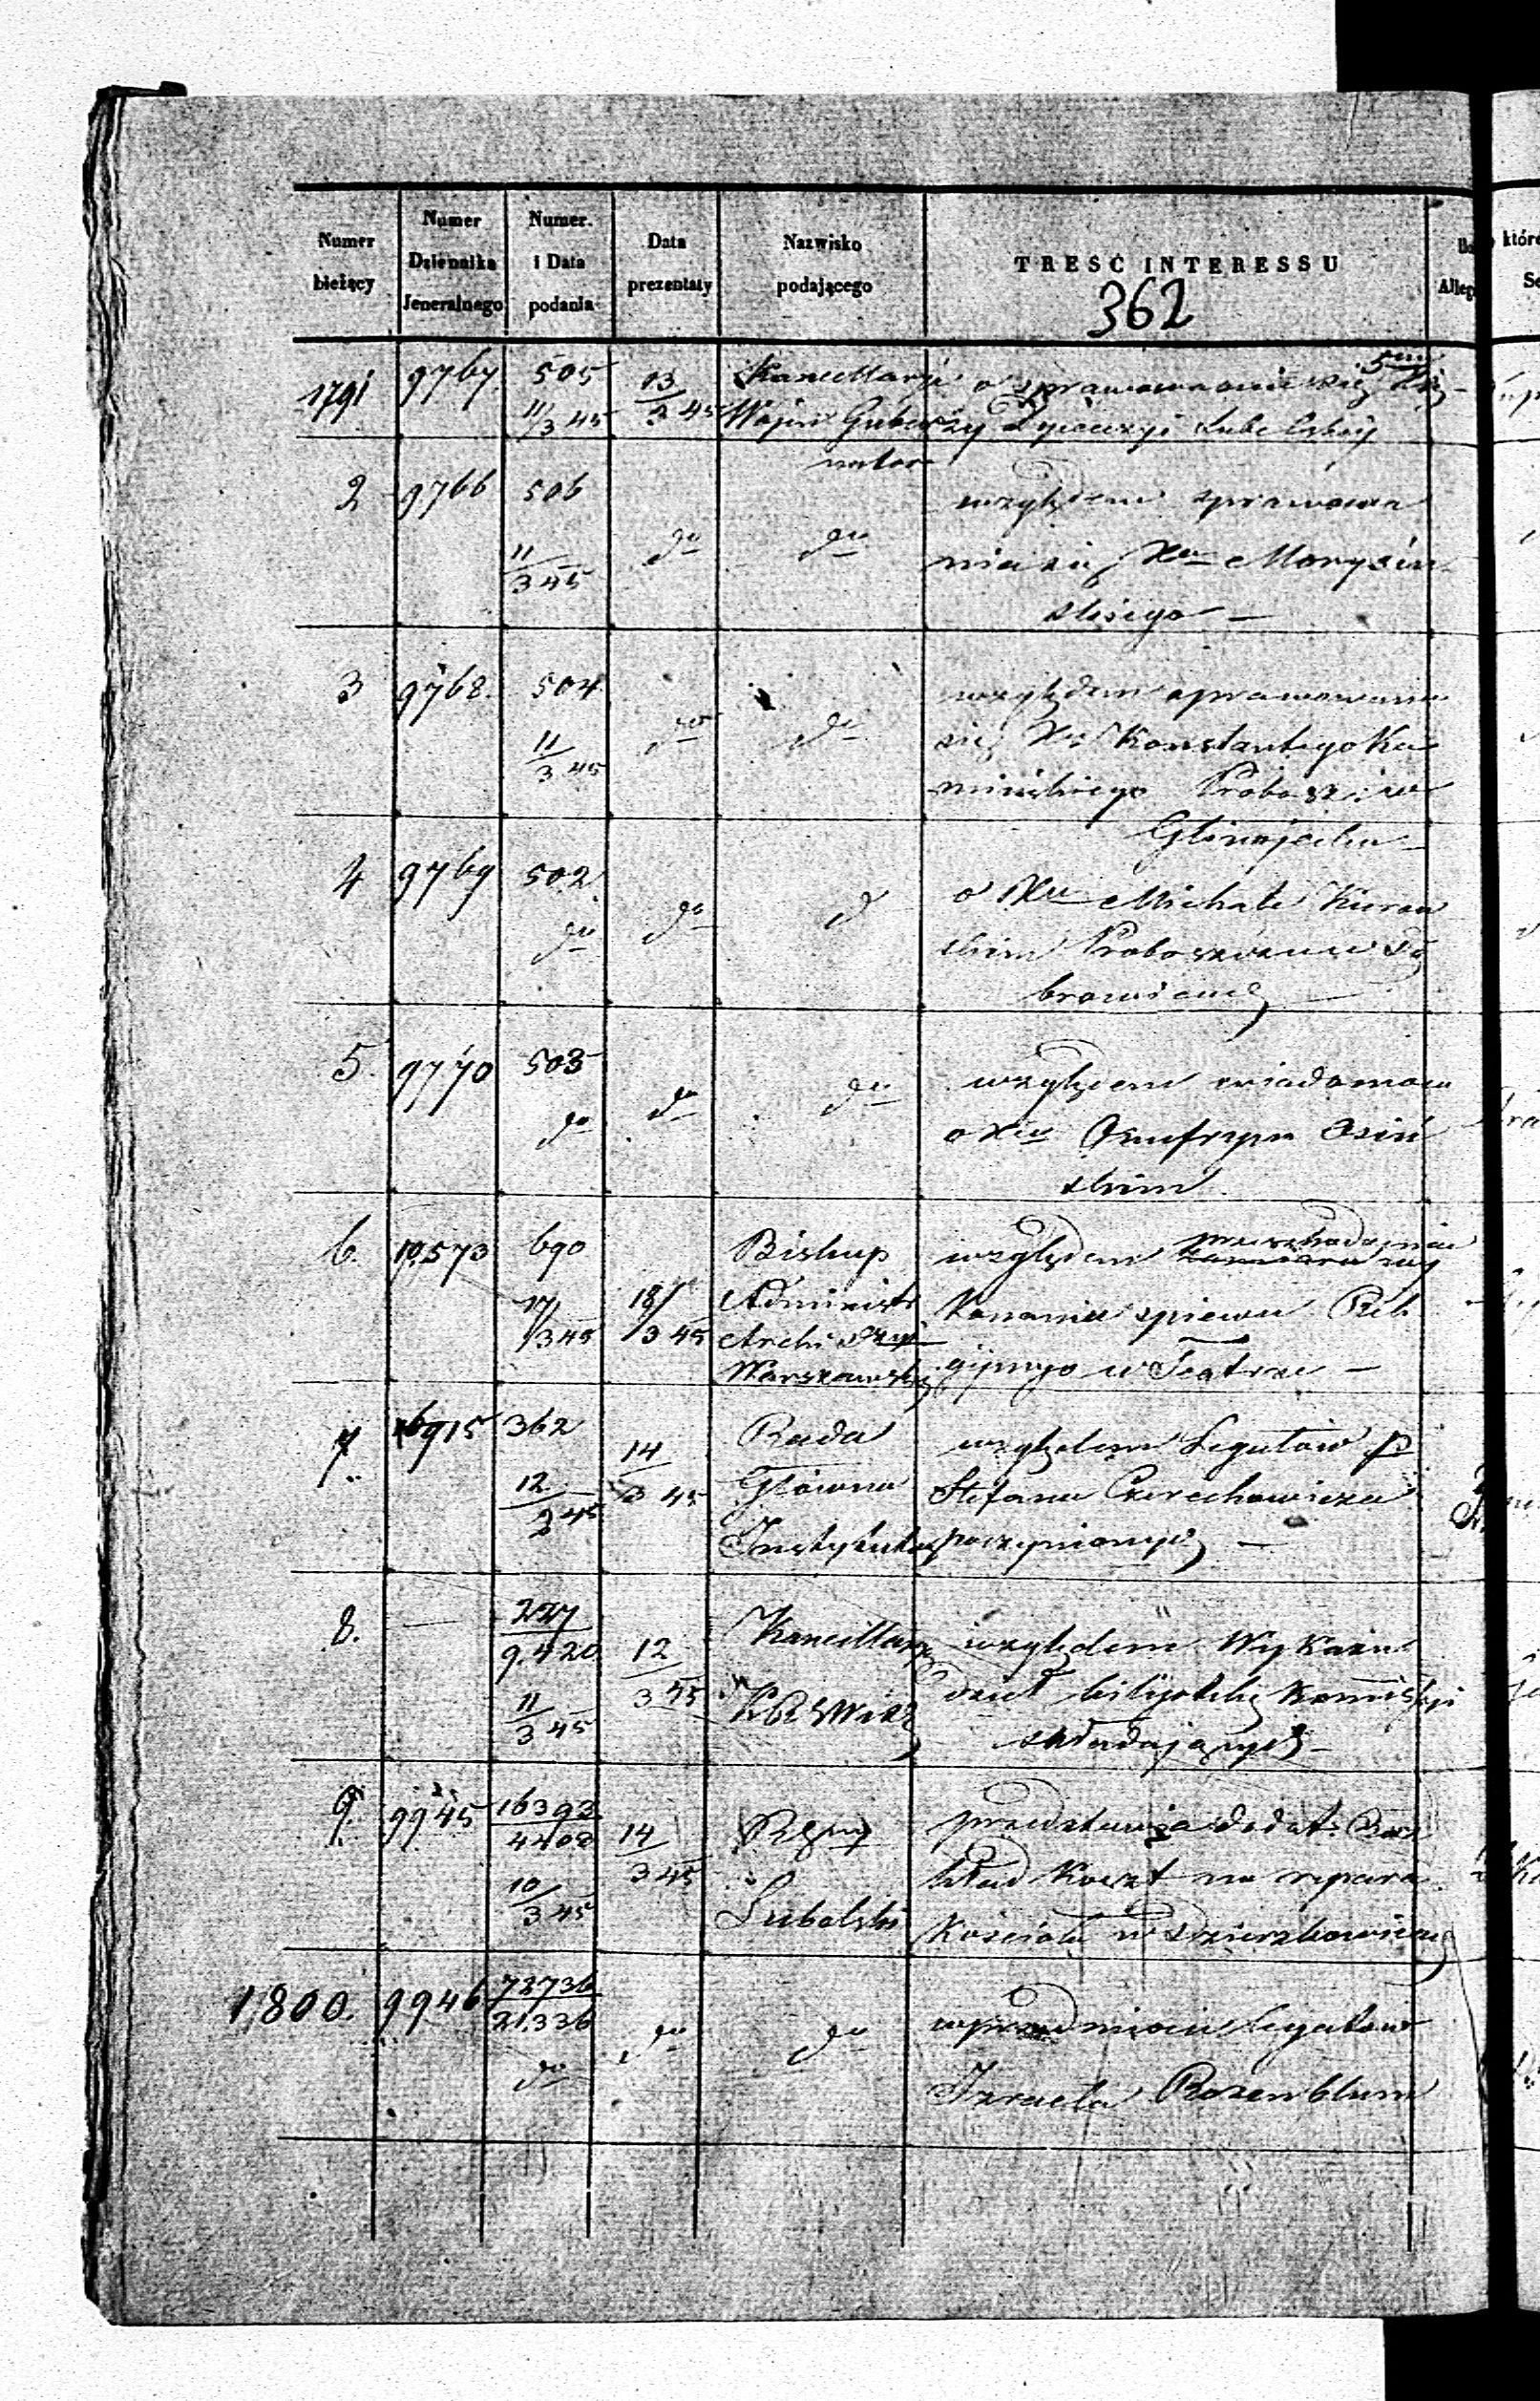 Numer bieżący
Numer Dziennika Jeneralnego
Numer i Data podania
Data prezentaty
Nazwisko podającego
TREŚĆ INTERESSU
362
Alleg
które
Se
1791 9767. 505 11/3 45 13/3 45 Kancellarji
Wojen Guber
nator
o sprawowaniu się 5ciu
Dyecezyi Lubelskiej
2 9766 506 11/3 45 do do
względem sprawowa
nia się Xa Morysiń
skiego —
3 9768. 504 11/3 45 do do
względem sprawowania
się Xa Konstantego Ka
mińskiego Probosz: w
Glinojecku
4 9769 502 do do d
o Xu Michale Kuraw
skim Proboszczu w Dą
browicach
5. 9770 503 do do do
względem wiadomości
o Xu Onufrym Osiń
skim
6. 10,573 690 17/3 45 18/3 45
Biskup
Administr
Archi Dyec
Warszawskiej
względem przeszkodzenia
konania spiewu Reli
gijnego w Teatrze —
7. 6915 362 12/2 45 14/3 45
Rada
Główna
Instytutów
względem Legatów p
Stefana Czerechowicza
poczynionych —
8. — 227/9.420 11/3 45 12/3 45
Kancellarya
KRSW
względem Wykazu
dzieł bibljotekę Kommissyi
składających —
9. 9945 16393/4402 10/3 45 14/3 45
Rząd
Lubelski
przedstawia dodat:
kład koszt na repara
Kościoła w Dzierzkowicach
1,800. 9946 72736/21336 do do do
w przedmiocie Legatów
Izraela Rozenblum